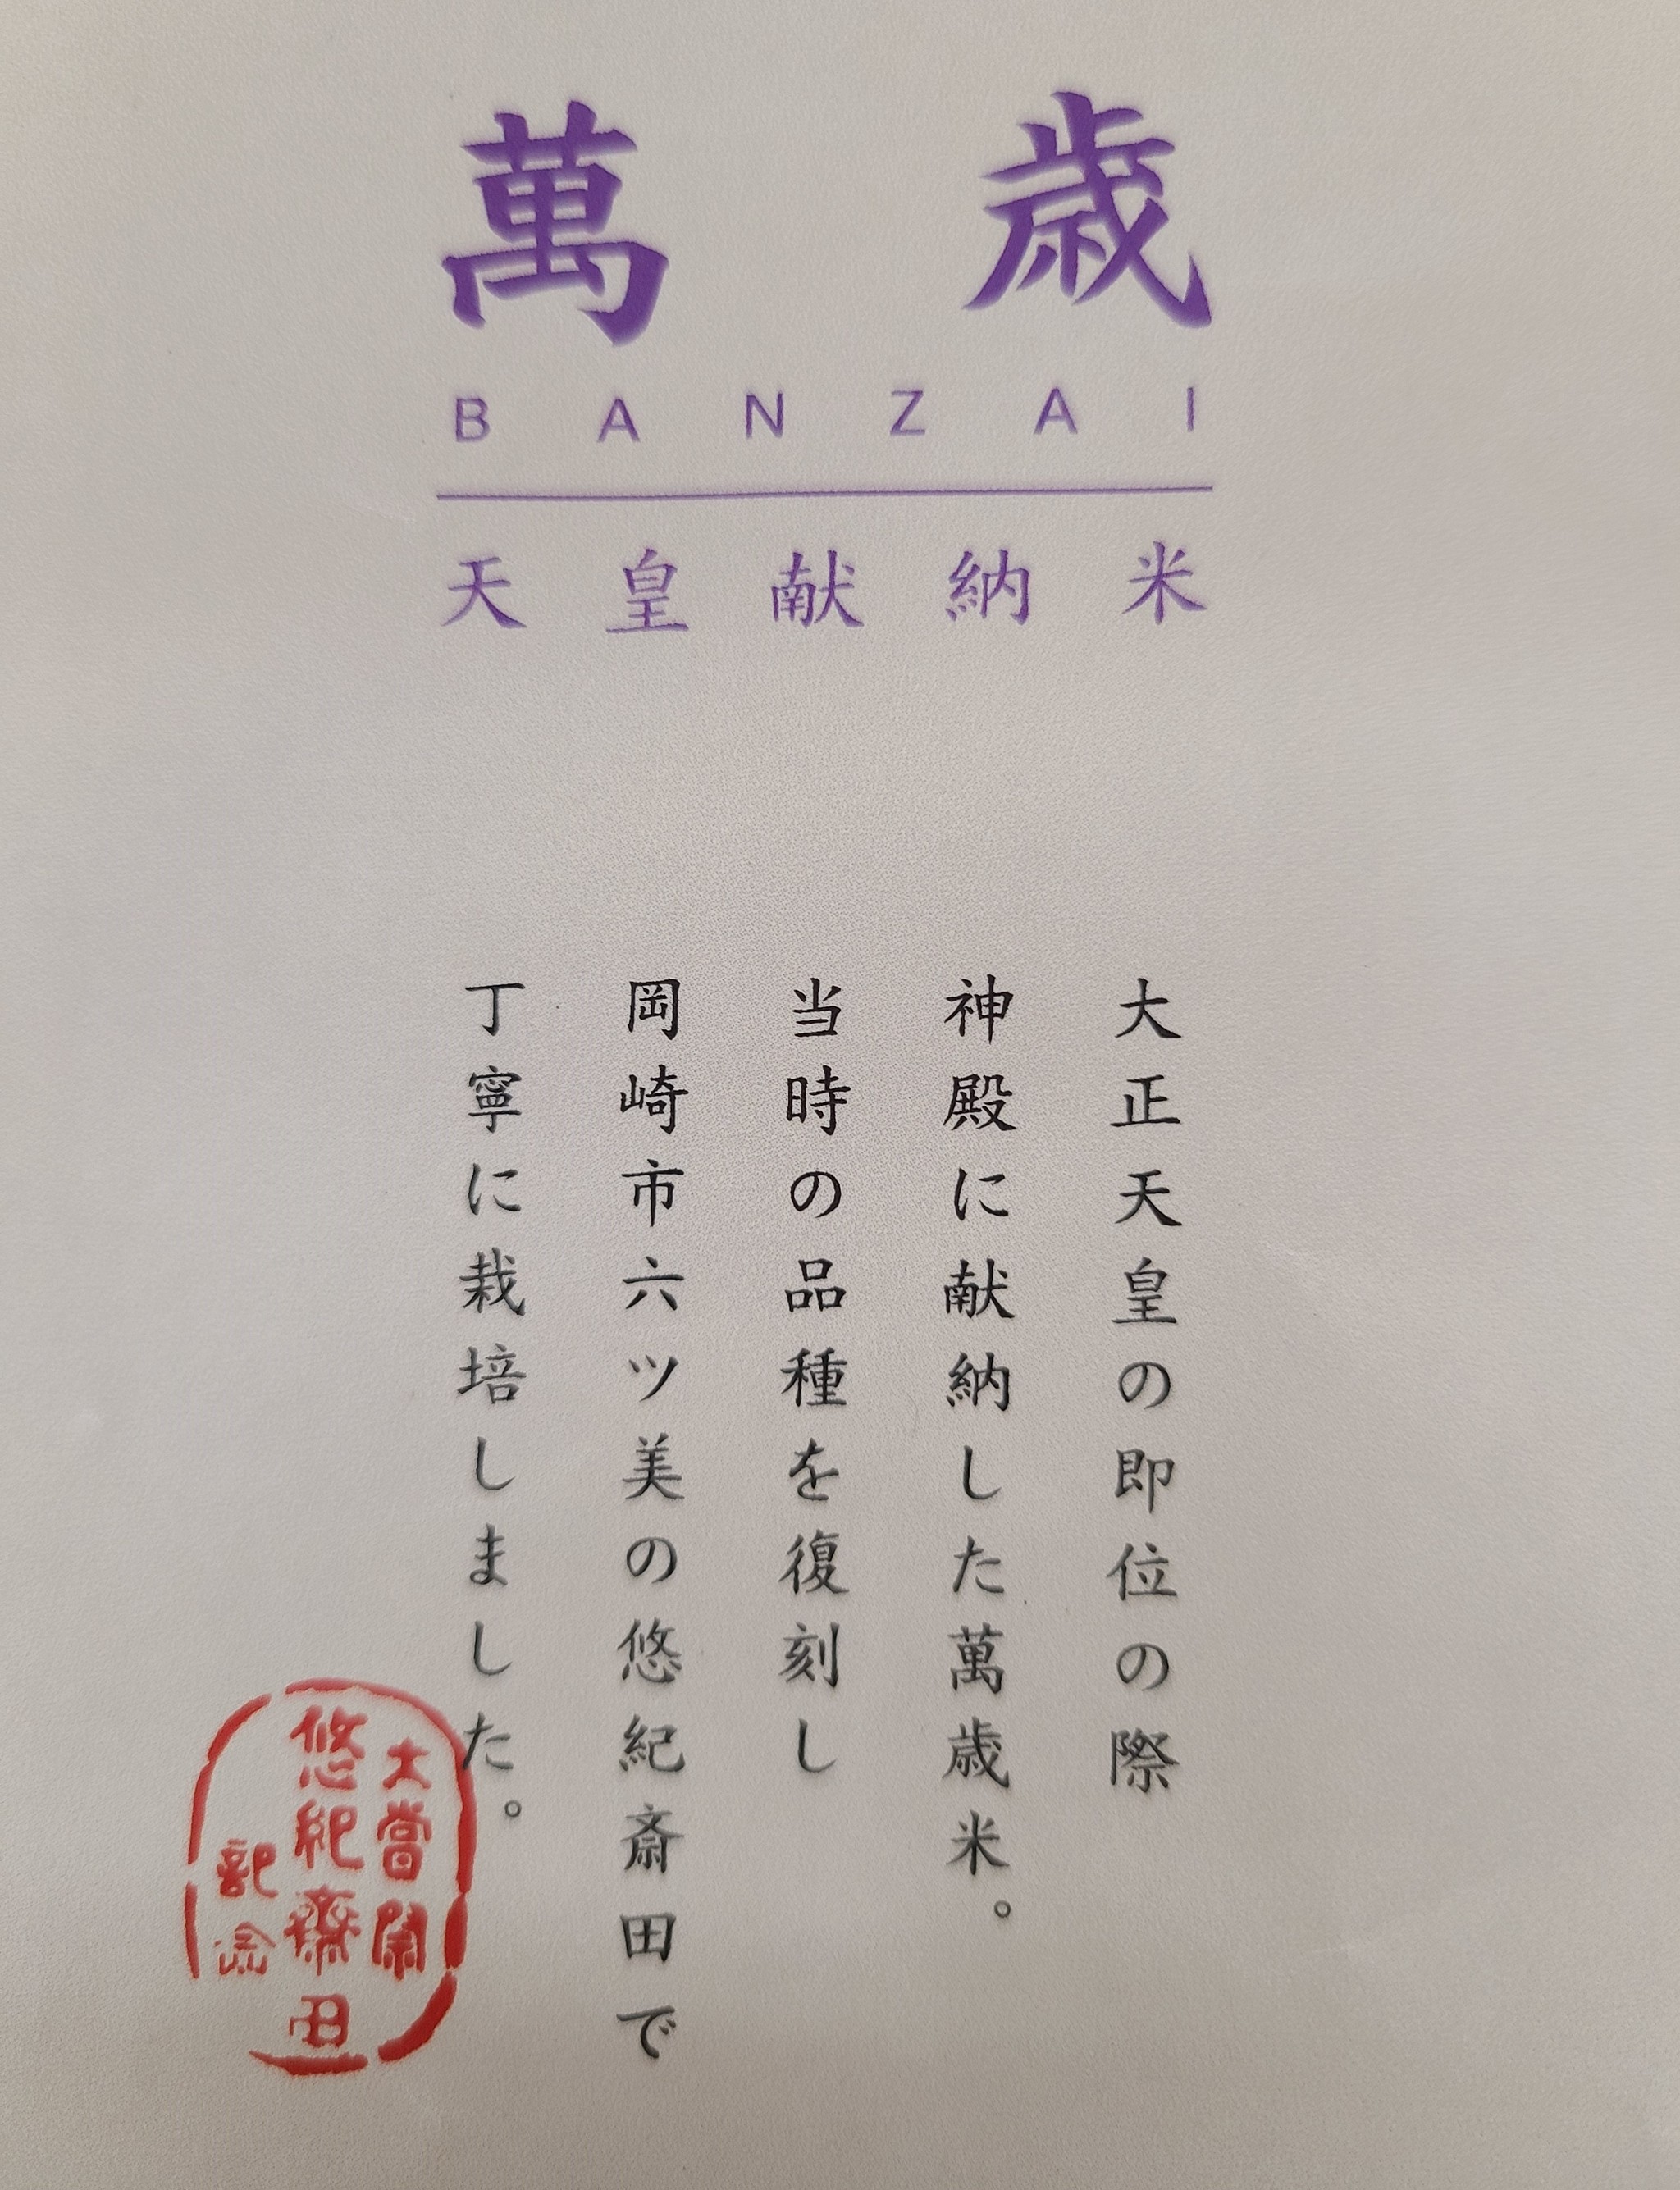 萬歳
BANZAI
天皇献納米
大正天皇の即位の際
神殿に献納した萬歳米。
当時の品種を復刻し
岡崎市六ツ美の悠紀斎田で
丁寧に栽培しました。
大嘗
悠紀齋田
記念